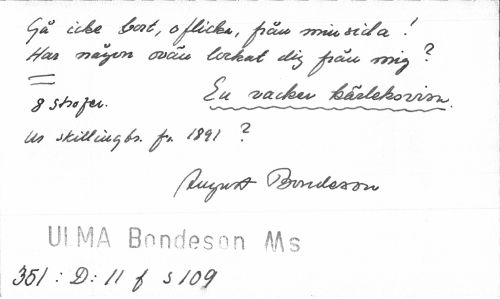 Gå icke bort, o flicka, från min sida!
Har någon ovän lockat dig från mig?
8 strofer.
En vacker kärleksvisa.
Ur skillingbr. fr. 1891 ?
August Bondeson
ULMA Bondeson Ms
351 : D: 11 f s 109